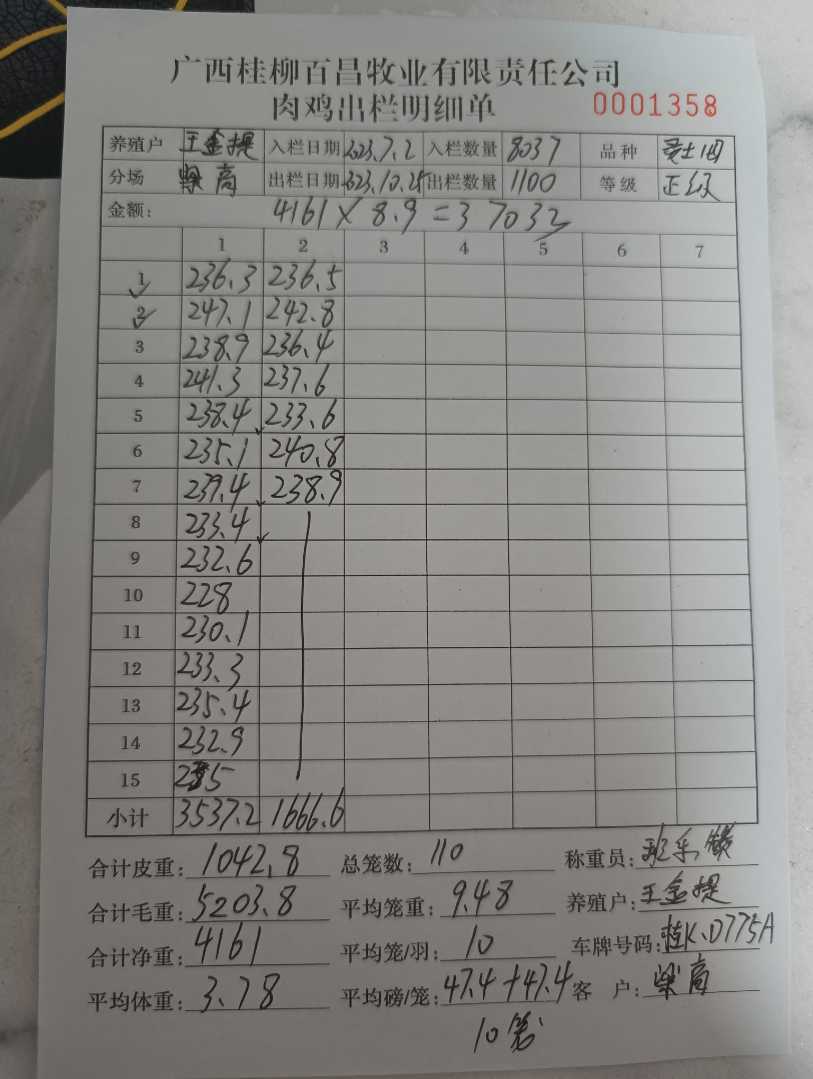 广西桂柳百昌牧业有限责任公司
肉鸡出栏明细单 0001358
养殖户 王金提 入栏日期 2023.7.2 入栏数量 8037 品种
分场 梁高 出栏日期 2023.10.25 出栏数量 1100 等级 正级
金额: 4161×8.9=37032
1 2 3 4 5 6 7
1 236.3 236.5
2 247.1 242.8
3 238.9 236.4
4 241.3 237.6
5 238.4 233.6
6 235.1 240.8
7 239.4 238.9
8 233.4
9 232.6
10 228
11 230.1
12 233.3
13 235.4
14 232.9
15 235
小计 3537.2 1666.6
合计皮重: 1042.8 总笼数: 110 称重员:
合计毛重: 5203.8 平均笼重: 9.48 养殖户: 王金提
合计净重: 4161 平均笼/羽: 10 车牌号码: 桂K·D775A
平均体重: 3.78 平均磅/笼: 47.4+47.4 客 户: 梁高
10笼